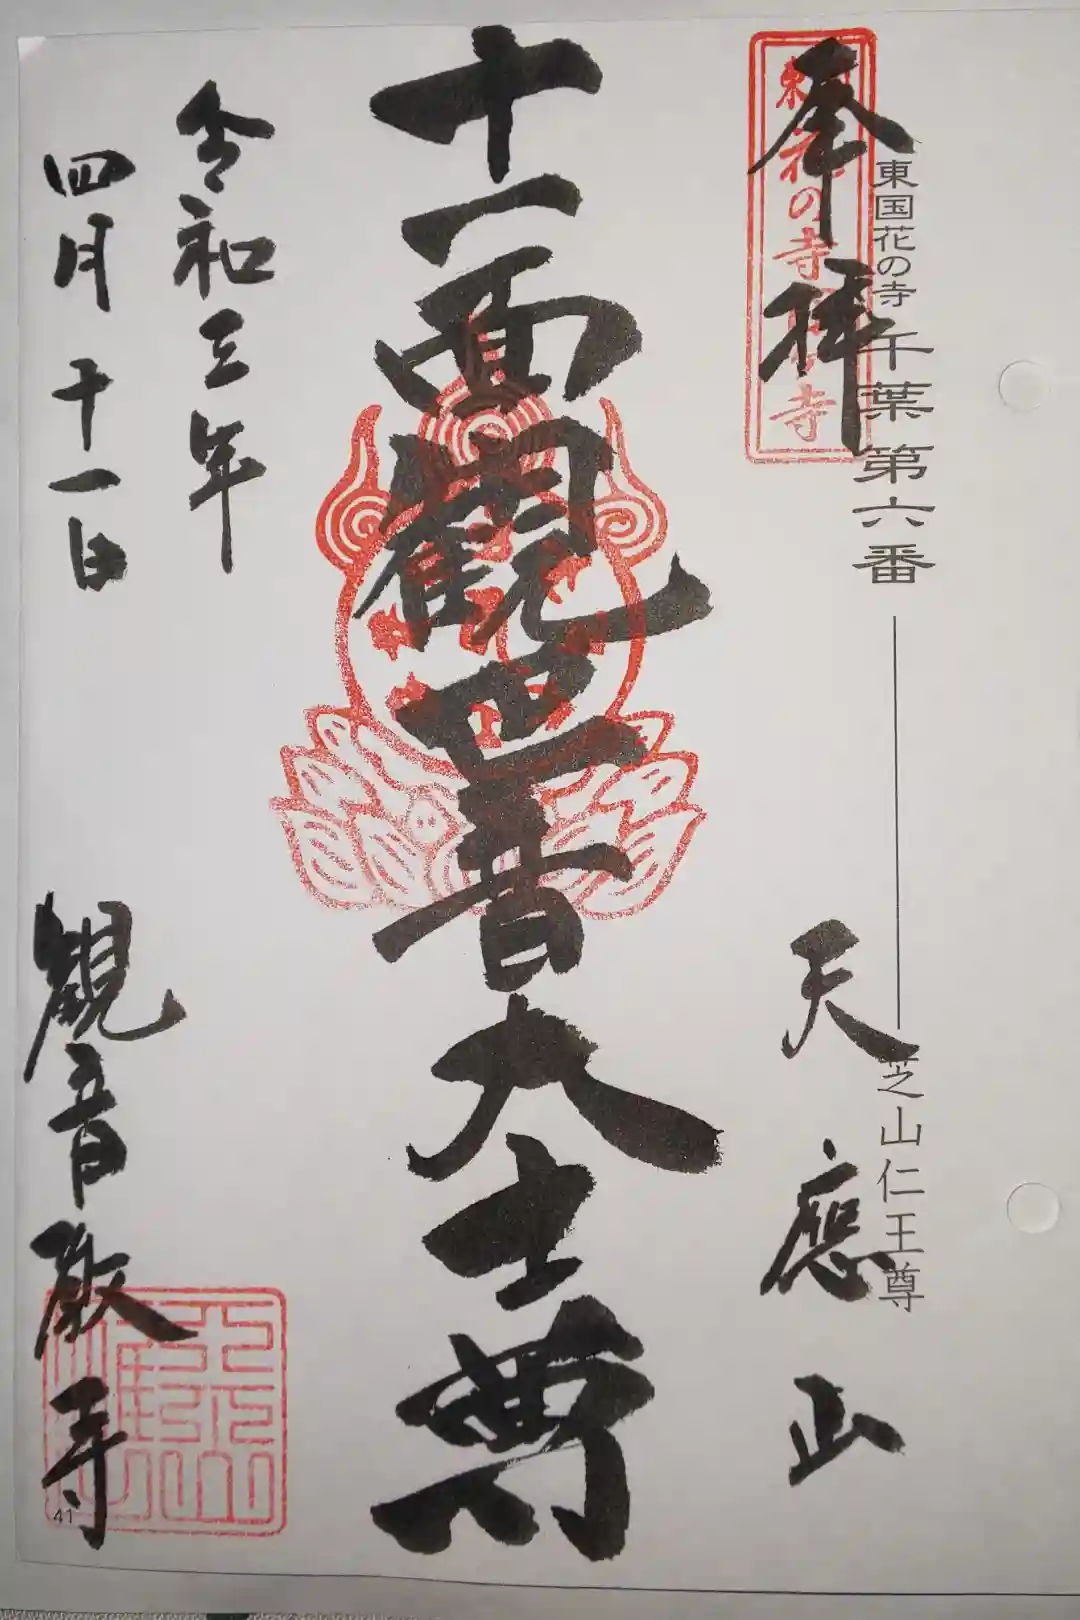 東国花の寺 千葉第六番
芝山仁王尊
奉拝
天應山
十一面観世音大士尊
令和三年
四月十一日
観音教寺
41